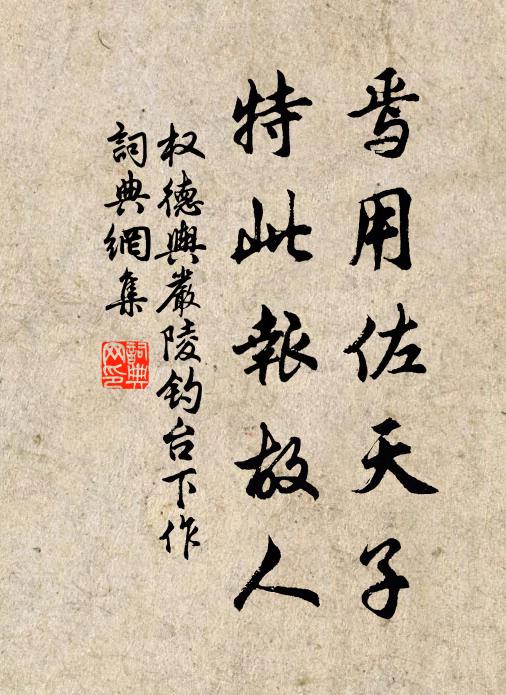 焉用佐天子
特此報故人
权德輿嚴陵钓台下作
詞典網集
詞典
网印